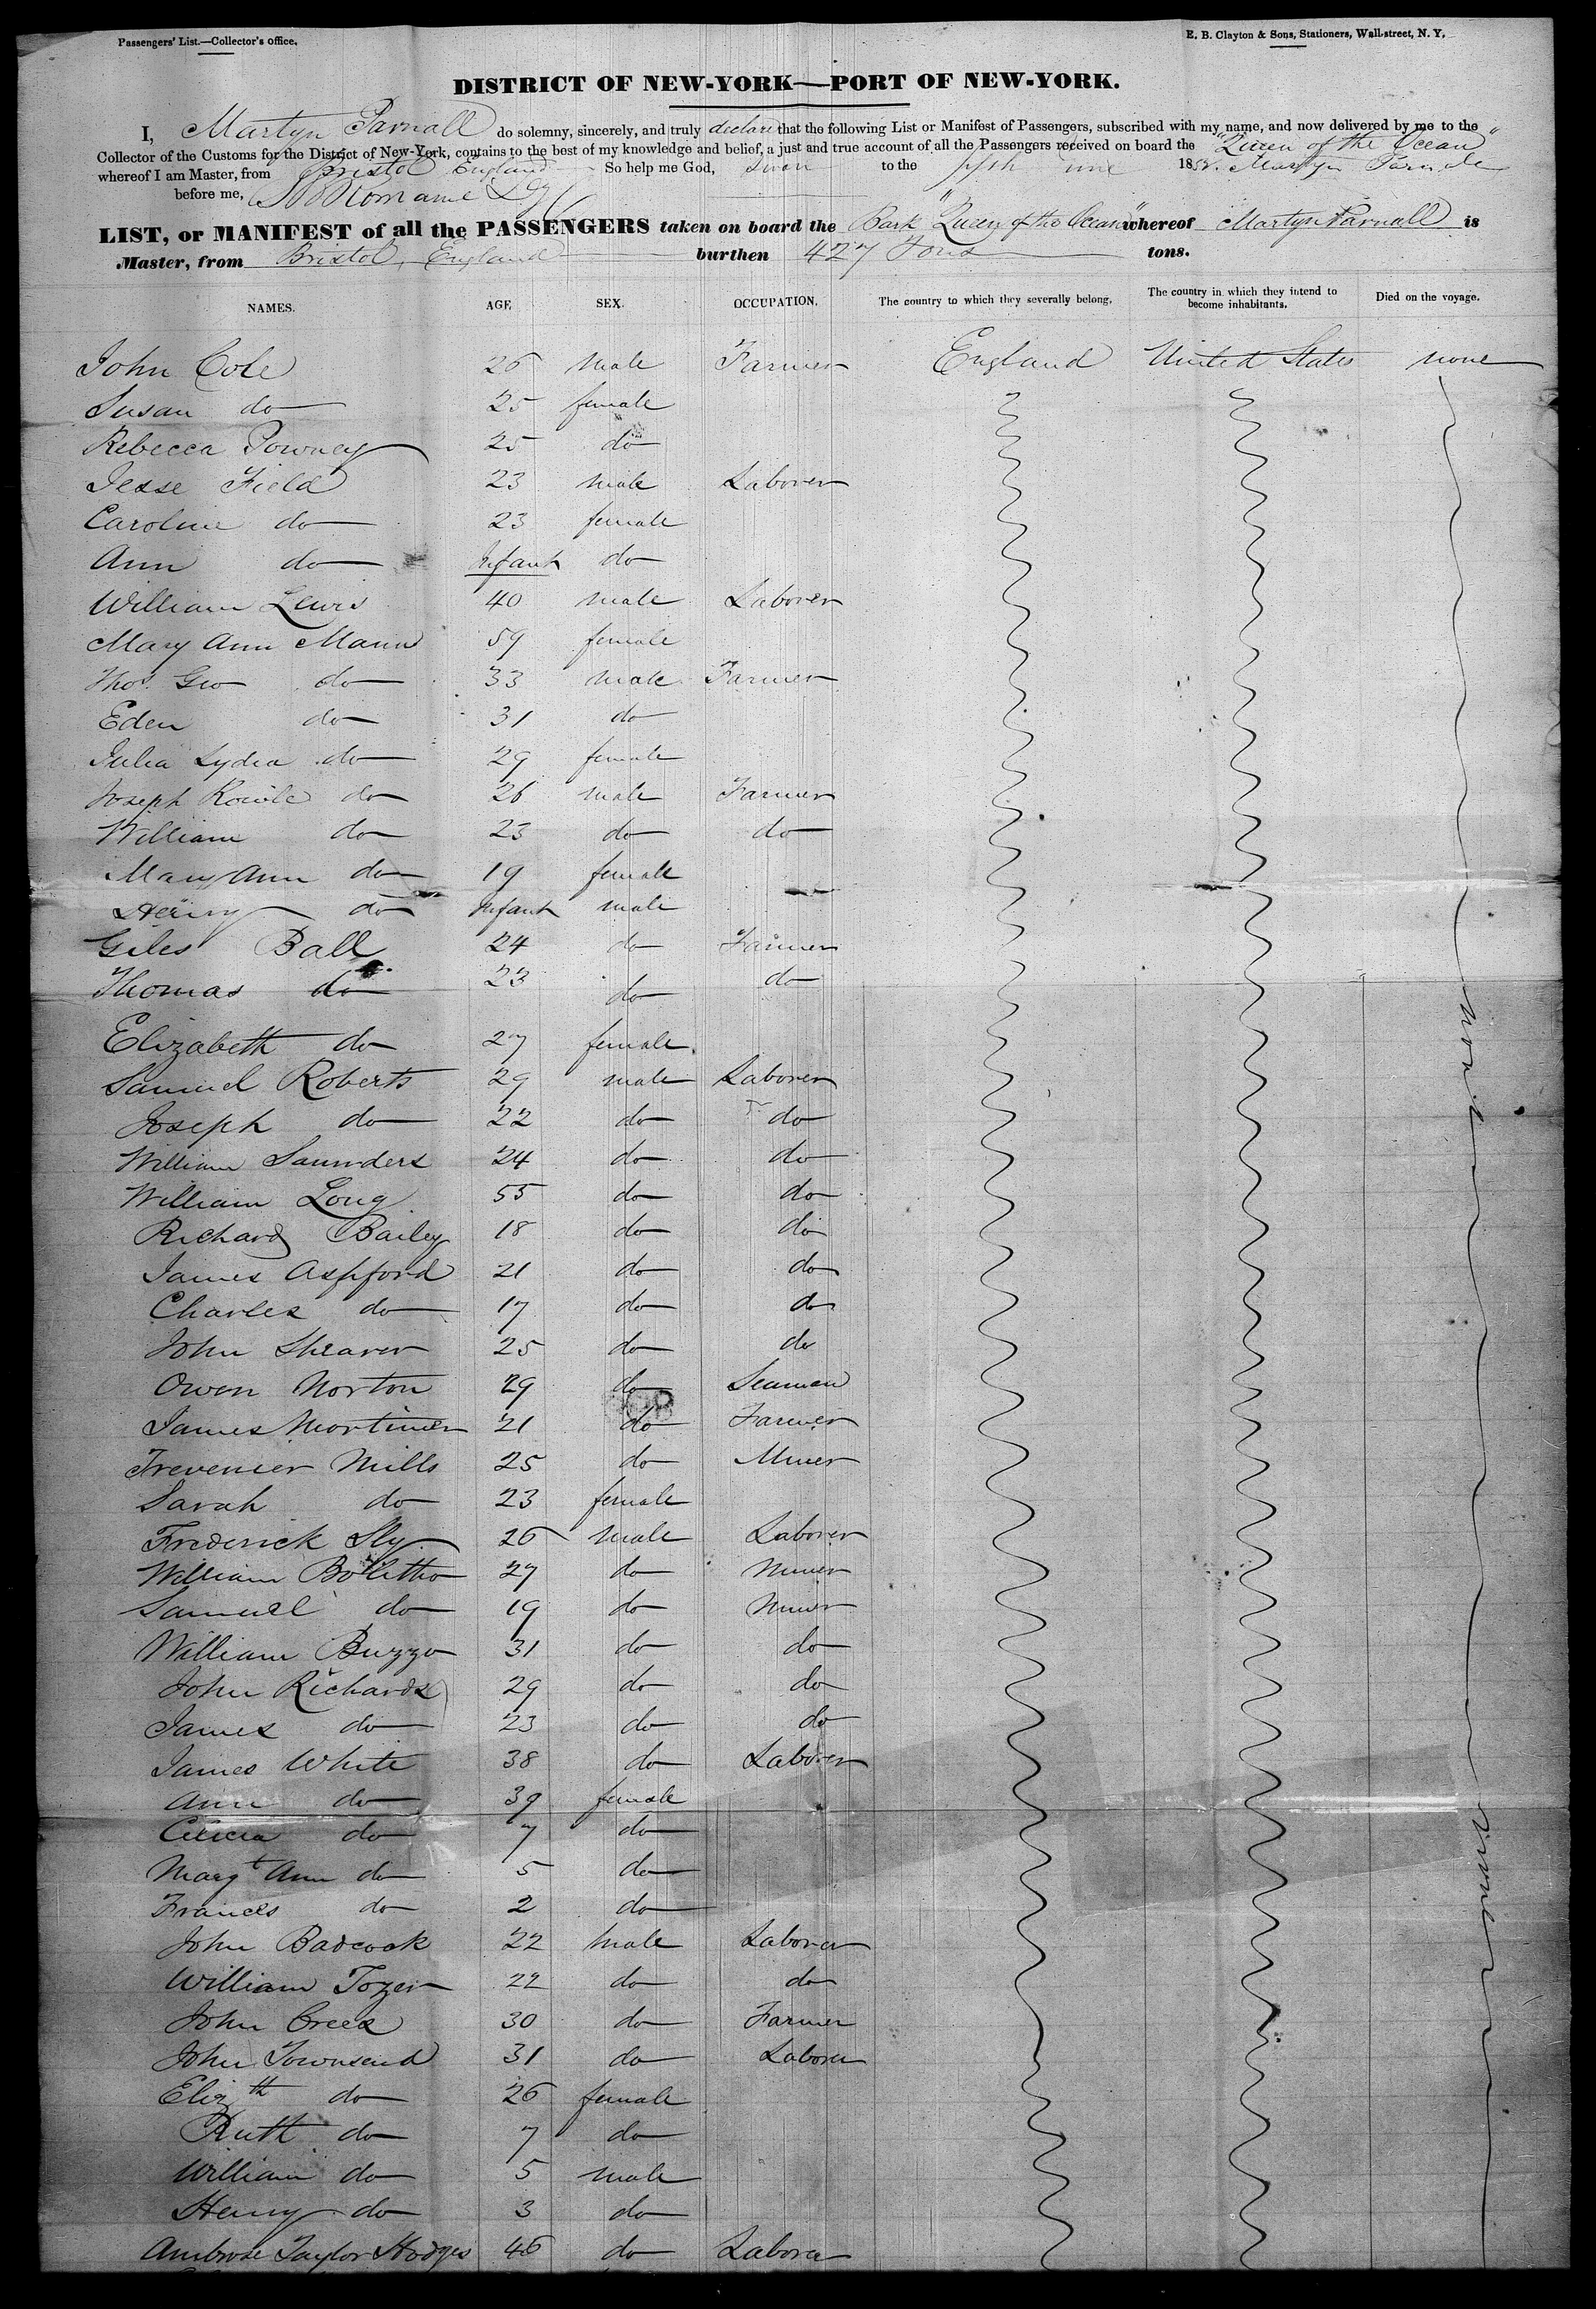 Passengers' List.—Collector's office.
E. B. Clayton & Sons, Stationers, Wall-street, N. Y.
DISTRICT OF NEW-YORK—PORT OF NEW-YORK.
I, Martyn Parnall do solemny, sincerely, and truly declare that the following List or Manifest of Passengers, subscribed with my name, and now delivered by me to the
Collector of the Customs for the District of New-York, contains to the best of my knowledge and belief, a just and true account of all the Passengers received on board the "Queen of the Ocean"
whereof I am Master, from Bristol England So help me God, Sworn to the fifth June 185 Martyn Parnall
before me,
LIST, or MANIFEST of all the PASSENGERS taken on board the Bark "Queen of the Ocean" whereof Martyn Parnall is
Master, from Bristol, England burthen 427 Tons tons.
NAMES. AGE SEX. OCCUPATION. The country to which they severally belong. The country in which they intend to become inhabitants. Died on the voyage.
John Cole 26 male Farmer England United States none
Susan do 25 female
Rebecca Powney 25 do
Jesse Field 23 male Laborer
Caroline do 23 female
Ann do Infant do
William Lewis 40 male Laborer
Mary Ann Mann 59 female
Thos. Geo do 33 male Farmer
Eden do 31 do
Julia Lydia do 29 female
Joseph do 26 male Farmer
William do 23 do do
Mary Ann do 19 female
Henry do Infant male
Giles Ball 24 do Farmer
Thomas do 23 do do
Elizabeth do 27 female
Samuel Roberts 29 male Laborer
Joseph do 22 do do
William Saunders 24 do do
William Long 55 do do
Richard Bailey 18 do do
James Ashford 21 do do
Charles do 17 do do
John Shearer 25 do do
Owen Norton 29 do Seaman
James Mortimer 21 do Farmer
Trevenier Mills 25 do Miner
Sarah do 23 female
Frederick Sly 26 male Laborer
William Bolitho 27 do Miner
Samuel do 19 do Miner
William Buzzo 31 do do
John Richards 29 do do
James do 23 do do
James White 38 do Laborer
Ann do 39 female
do 7 do
Margt Ann do 5 do
Frances do 2 do
John Badcock 22 male Laborer
William Tozer 22 do do
John Crees 30 do Farmer
John Townsend 31 do Laborer
Elizth do 26 female
Ruth do 7 do
William do 5 male
Henry do 3 do
Ambrose Taylor Hodges 46 do Laborer